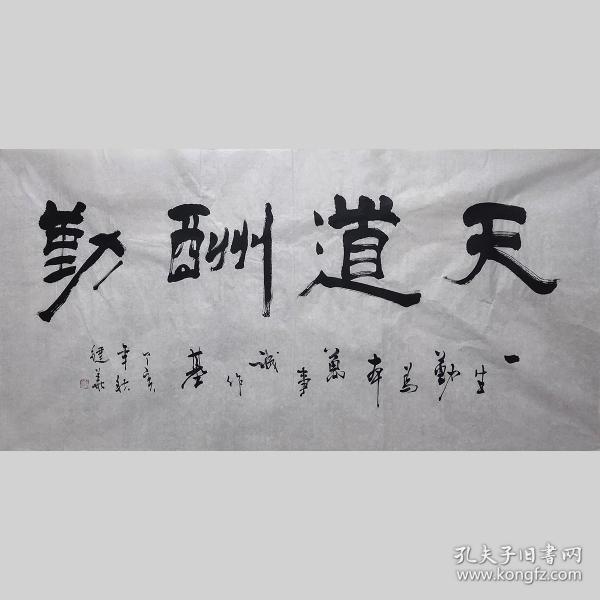 天道酬勤
一生勤為本萬事誠作基
丁亥年秋
健美
孔夫子旧书网
www.kongfz.com